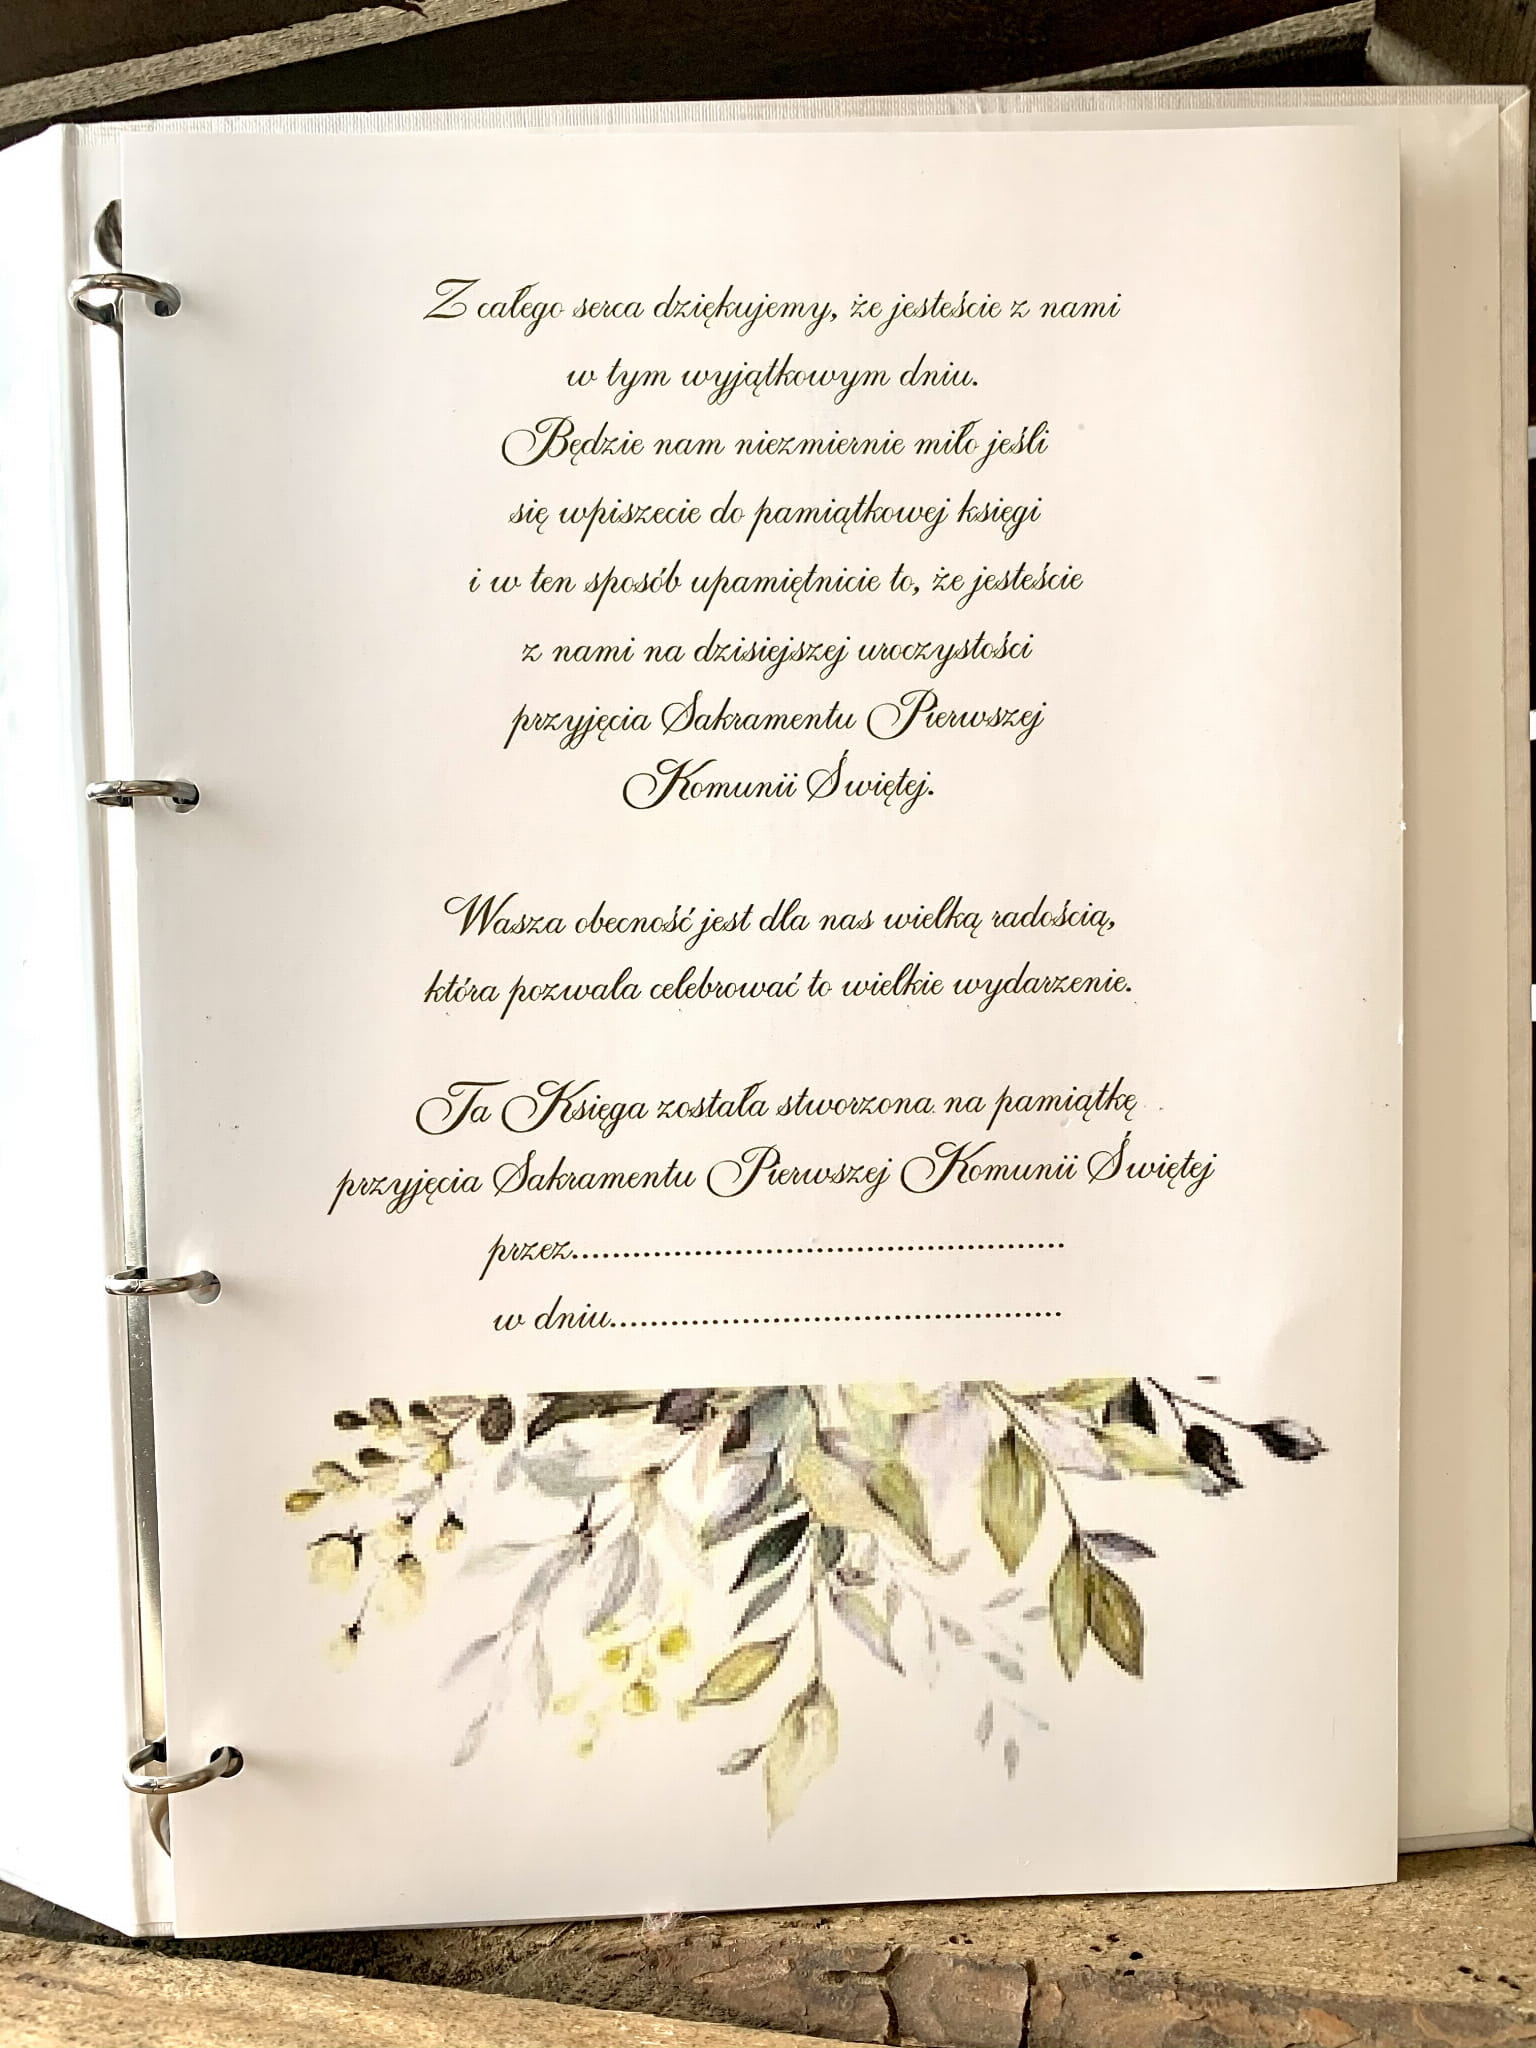 Z całego serca dziękujemy, że jesteście z nami
w tym wyjątkowym dniu.
Będzie nam niezmiernie miło jeśli
się wpiszecie do pamiątkowej księgi
i w ten sposób upamiętnicie to, że jesteście
z nami na dzisiejszej uroczystości
przyjęcia Sakramentu Pierwszej
Komunii Świętej.
Wasza obecność jest dla nas wielką radością,
która pozwala celebrować to wielkie wydarzenie.
Ta Księga została stworzona na pamiątkę
przyjęcia Sakramentu Pierwszej Komunii Świętej
przez................................................
w dniu............................................